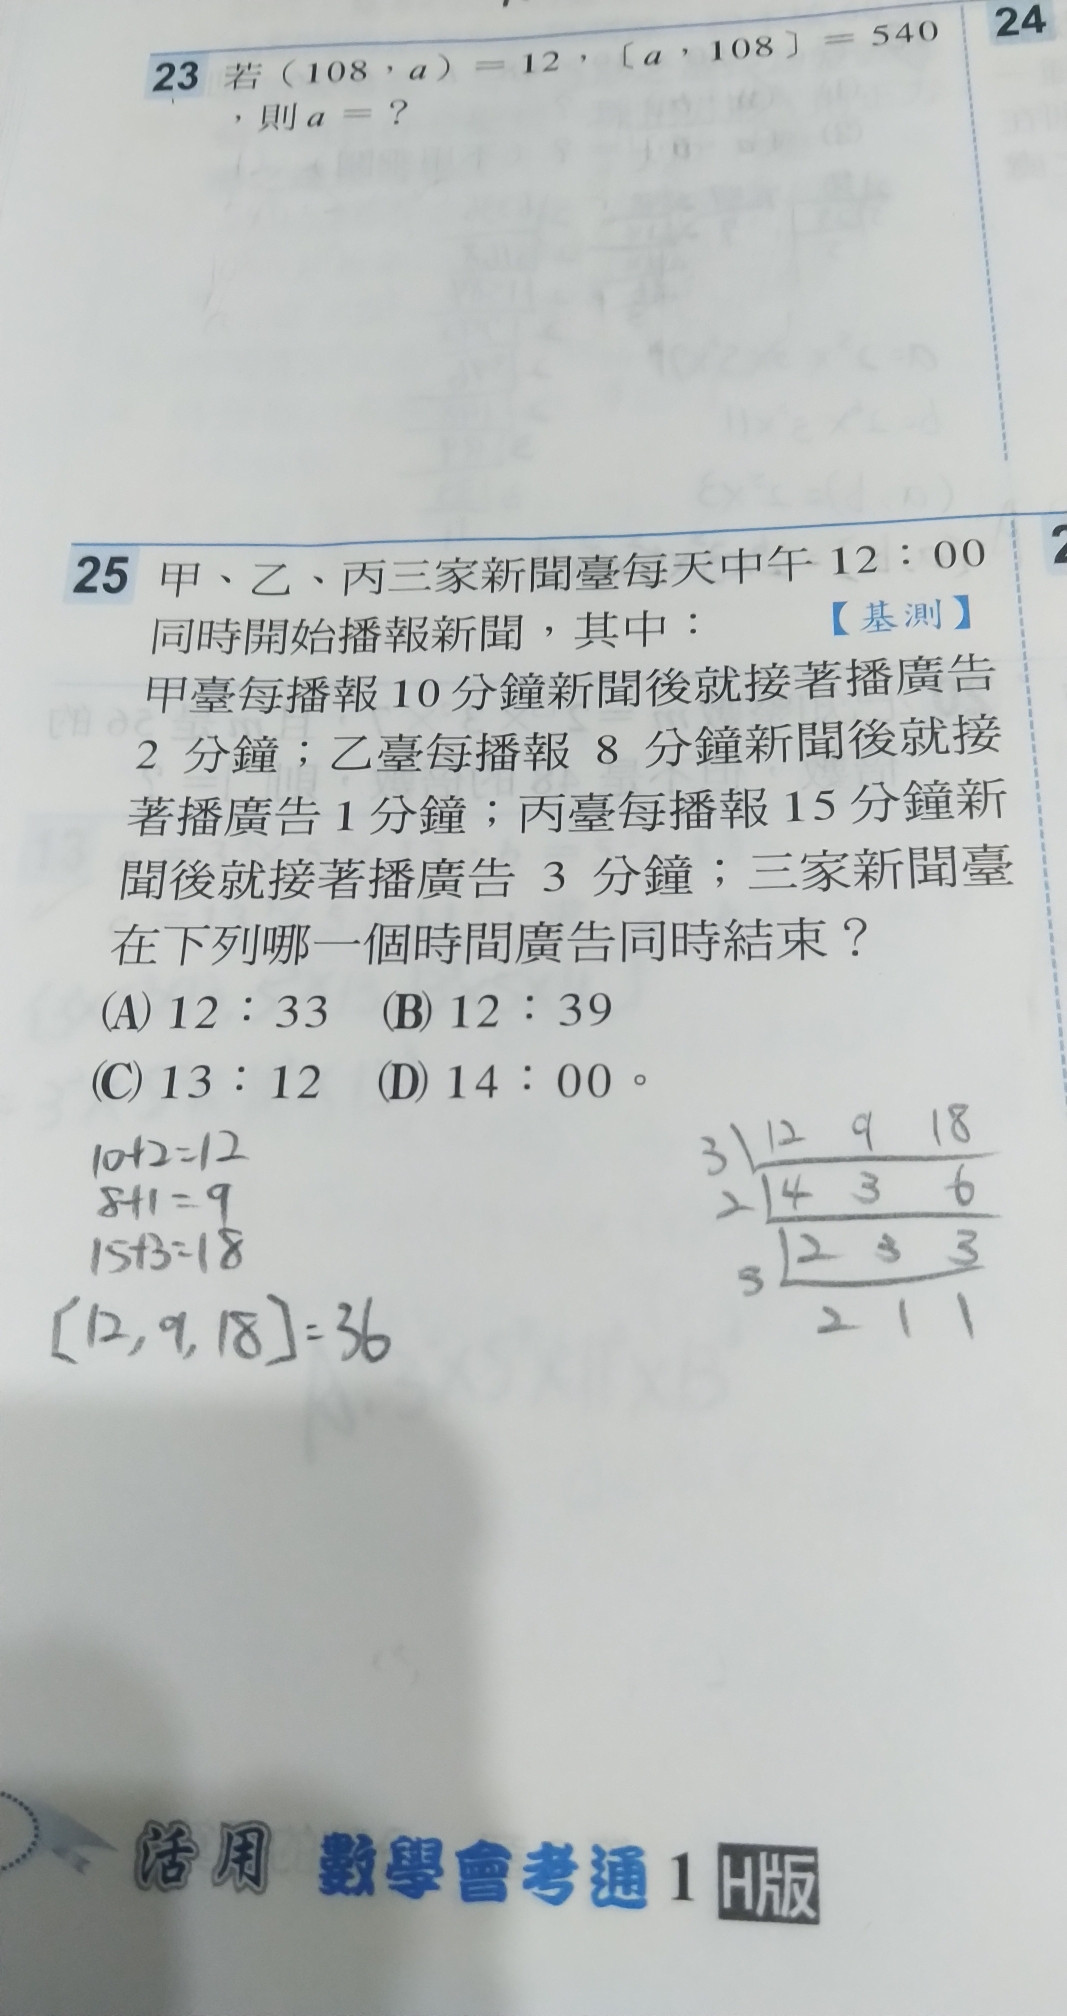 24
23 若（108，a）＝12，〔a，108〕＝540
，則a＝？
25 甲、乙、丙三家新聞臺每天中午12：00
同時開始播報新聞，其中：【基測】
甲臺每播報10分鐘新聞後就接著播廣告
2 分鐘；乙臺每播報 8 分鐘新聞後就接
著播廣告1分鐘；丙臺每播報15分鐘新
聞後就接著播廣告 3 分鐘；三家新聞臺
在下列哪一個時間廣告同時結束？
(A) 12：33 (B) 12：39
(C) 13：12 (D) 14：00。
10+2=12
8+1=9
15+3=18
[12,9,18]=36
3 12 9 18
2 4 3 6
3 2 3 3
2 1 1
活用 數學會考通 1 H版